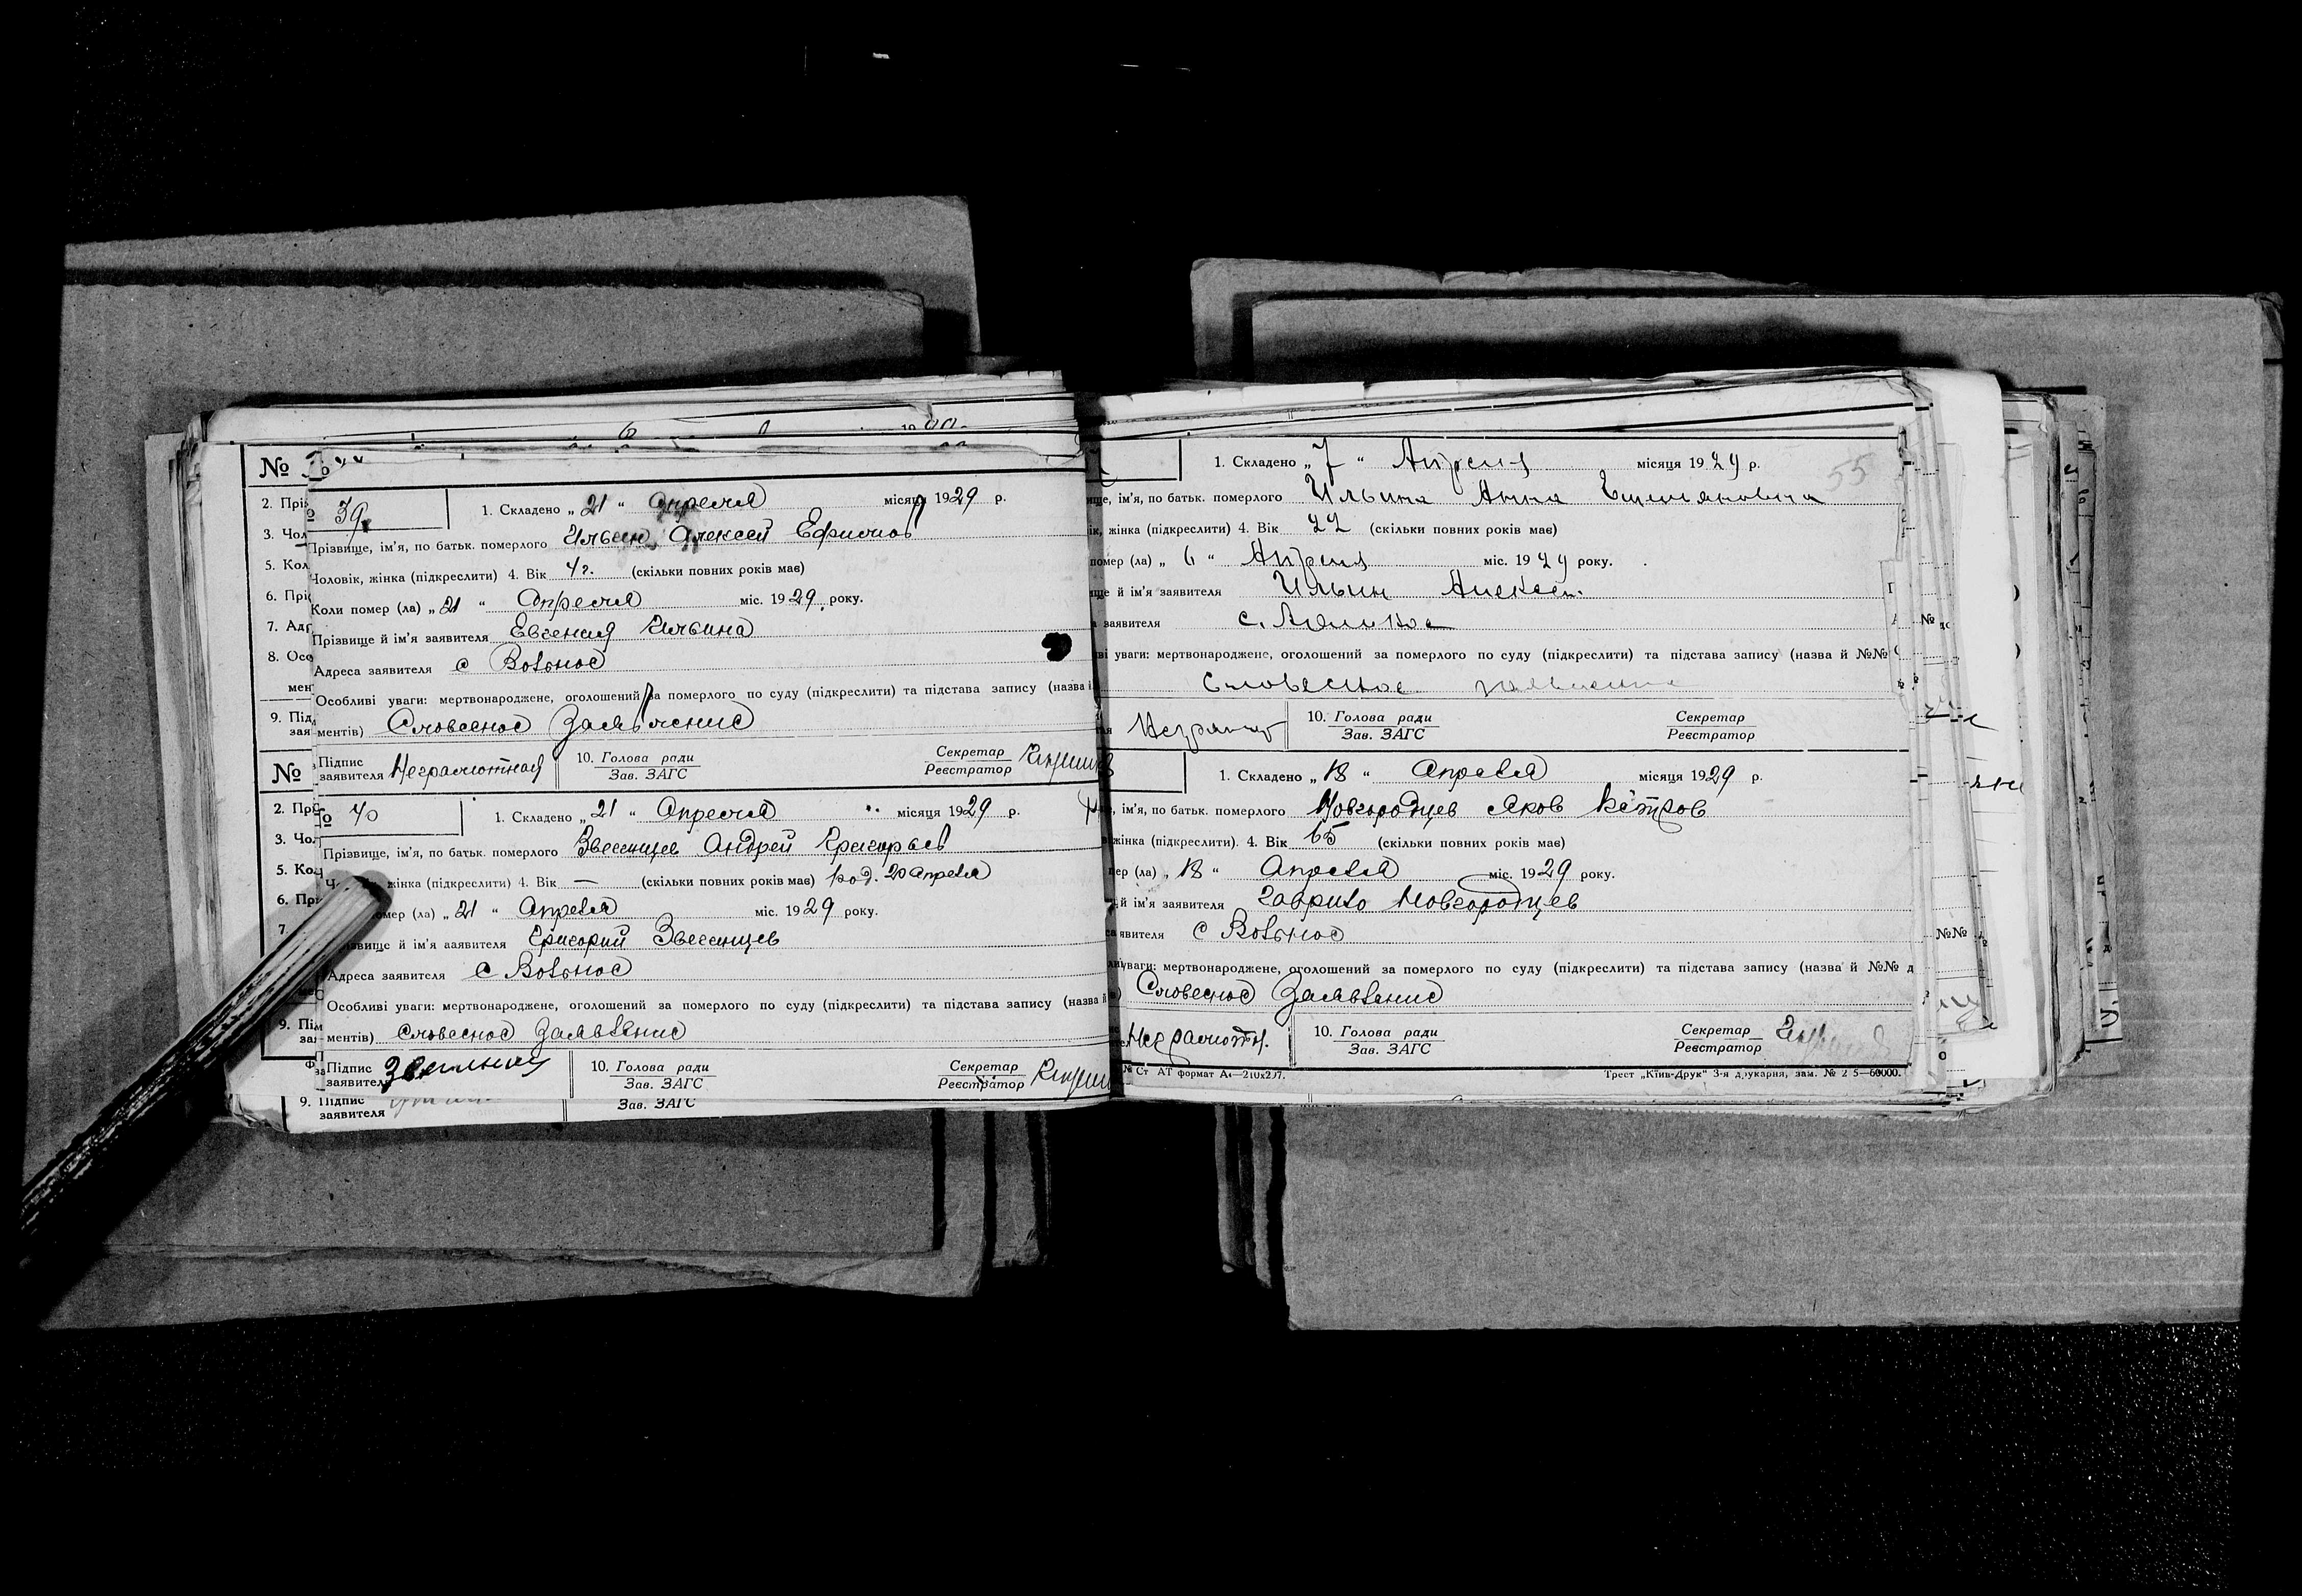 № 39
1. Складено „ 21 “ Апреля місяця 1929 р.
Прізвище, ім'я, по батьк. померлого Ильин Алексей Ефимов
Чоловік, жінка (підкреслити) 4. Вік 4 г. (скільки повних років має)
Коли помер (ла) „ 21 “ Апреля міс. 1929 року.
Прізвище й ім'я заявителя Евгения Ильина
Адреса заявителя с Вольное
Особливі уваги: мертвонароджене, оголошений за померлого по суду (підкреслити) та підстава запису (назва й
ментів) Словесное Заявление
Підпис заявителя Неграмотная 10. Голова ради Зав. ЗАГС Секретар Реєстратор
№ 40
1. Складено „ 21 “ Апреля місяця 1929 р.
Прізвище, ім'я, по батьк. померлого Звегинцев Андрей Григорьев
жінка (підкреслити) 4. Вік — (скільки повних років має) род. 20 Апреля
мер (ла) „ 21 “ Апреля міс. 1929 року.
Прізвище й ім'я заявителя Григорий Звегинцев
Адреса заявителя с Вольное
Особливі уваги: мертвонароджене, оголошений за померлого по суду (підкреслити) та підстава запису (назва й
ментів) Словесное Заявление
Підпис заявителя 10. Голова ради Зав. ЗАГС Секретар Реєстратор
9. Підпис заявителя Зав. ЗАГС
55
1. Складено „ 7 “ Апреля місяця 1929 р.
ім'я, по батьк. померлого Ильина Анна
жінка (підкреслити) 4. Вік 22 (скільки повних років має)
помер (ла) „ 6 “ Апреля міс. 1929 року.
й ім'я заявителя Ильин Алексей.
заявителя с.
уваги: мертвонароджене, оголошений за померлого по суду (підкреслити) та підстава запису (назва й №№
Словесное заявление
Неграмот 10. Голова ради Зав. ЗАГС Секретар Реєстратор
1. Складено „ 18 “ Апреля місяця 1929 р.
ім'я, по батьк. померлого Новгородцев Яков Петров
жінка (підкреслити). 4. Вік 65 (скільки повних років має)
(ла) „ 18 “ Апреля міс. 1929 року.
й ім'я заявителя Гаврило Новгородцев
заявителя с Вольное
уваги: мертвонароджене, оголошений за померлого по суду (підкреслити) та підстава запису (назва й №№ д
Словесное Заявление
Неграмотн. 10. Голова ради Зав. ЗАГС Секретар Реєстратор
Трест „Київ-Друк“ 3-я друкарня, зам.